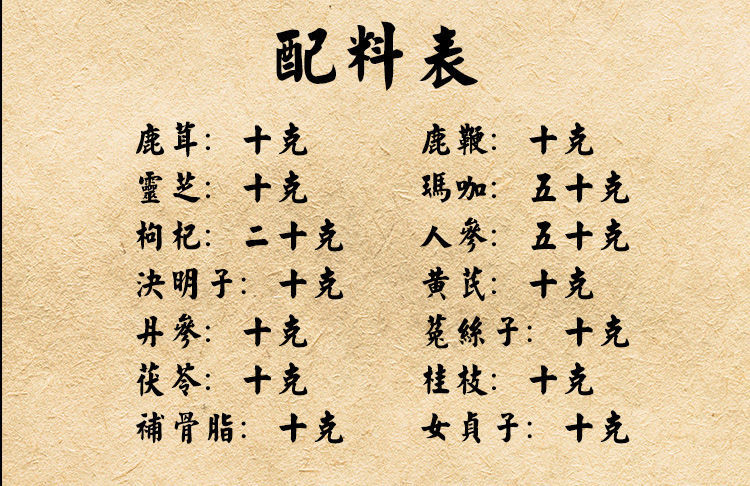 配料表
鹿茸：十克
鹿鞭：十克
靈芝：十克
瑪咖：五十克
枸杞：二十克
人參：五十克
決明子：十克
黄芪：十克
丹參：十克
菟絲子：十克
茯苓：十克
桂枝：十克
補骨脂：十克
女貞子：十克